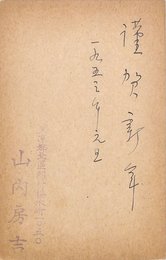 謹賀新年
一九五三年元旦
山内房吉